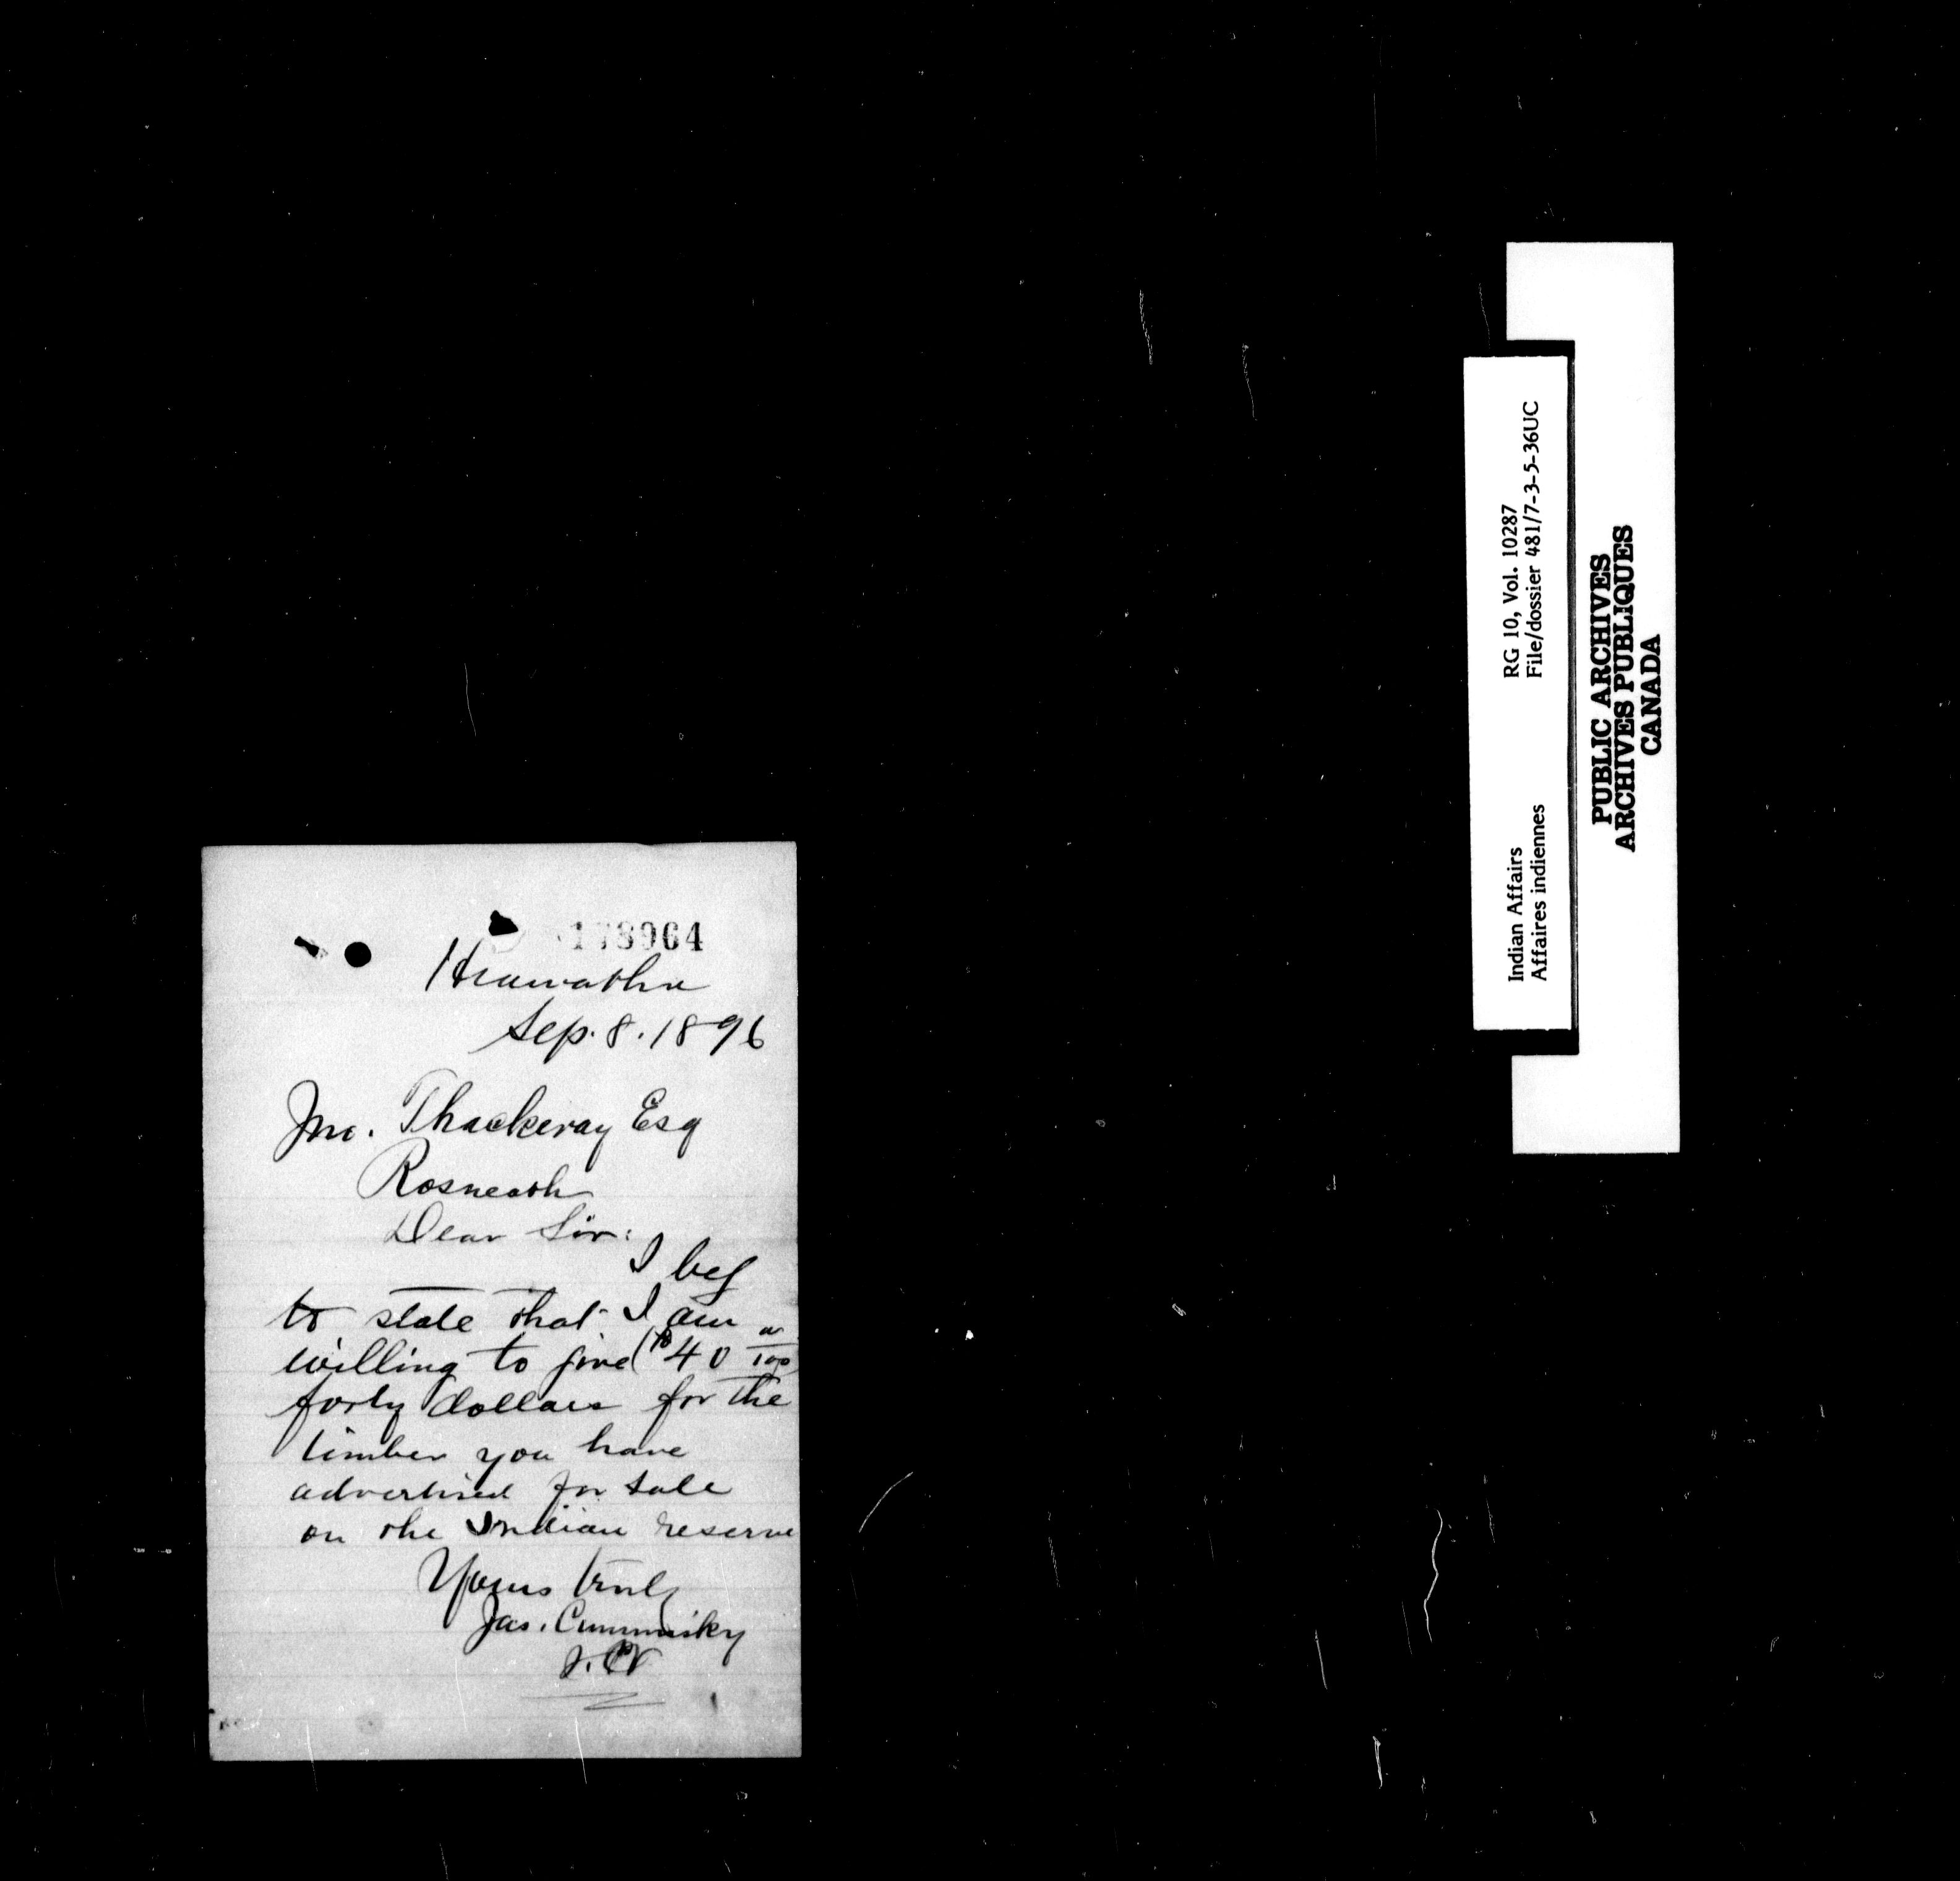 178964
Hiawatha
Sep. 8. 1896
Jno. Thackeray Esq
Rosneath
Dear Sir:
I beg
to state that I am
willing to give ($40 00/100)
forty dollars for the
timber you have
advertised for sale
on the Indian reserve
Yours truly
Jas. Cummisky
Indian Affairs
Affaires indiennes
RG 10, Vol. 10287
File/dossier 481/7-3-5-36UC
PUBLIC ARCHIVES
ARCHIVES PUBLIQUES
CANADA